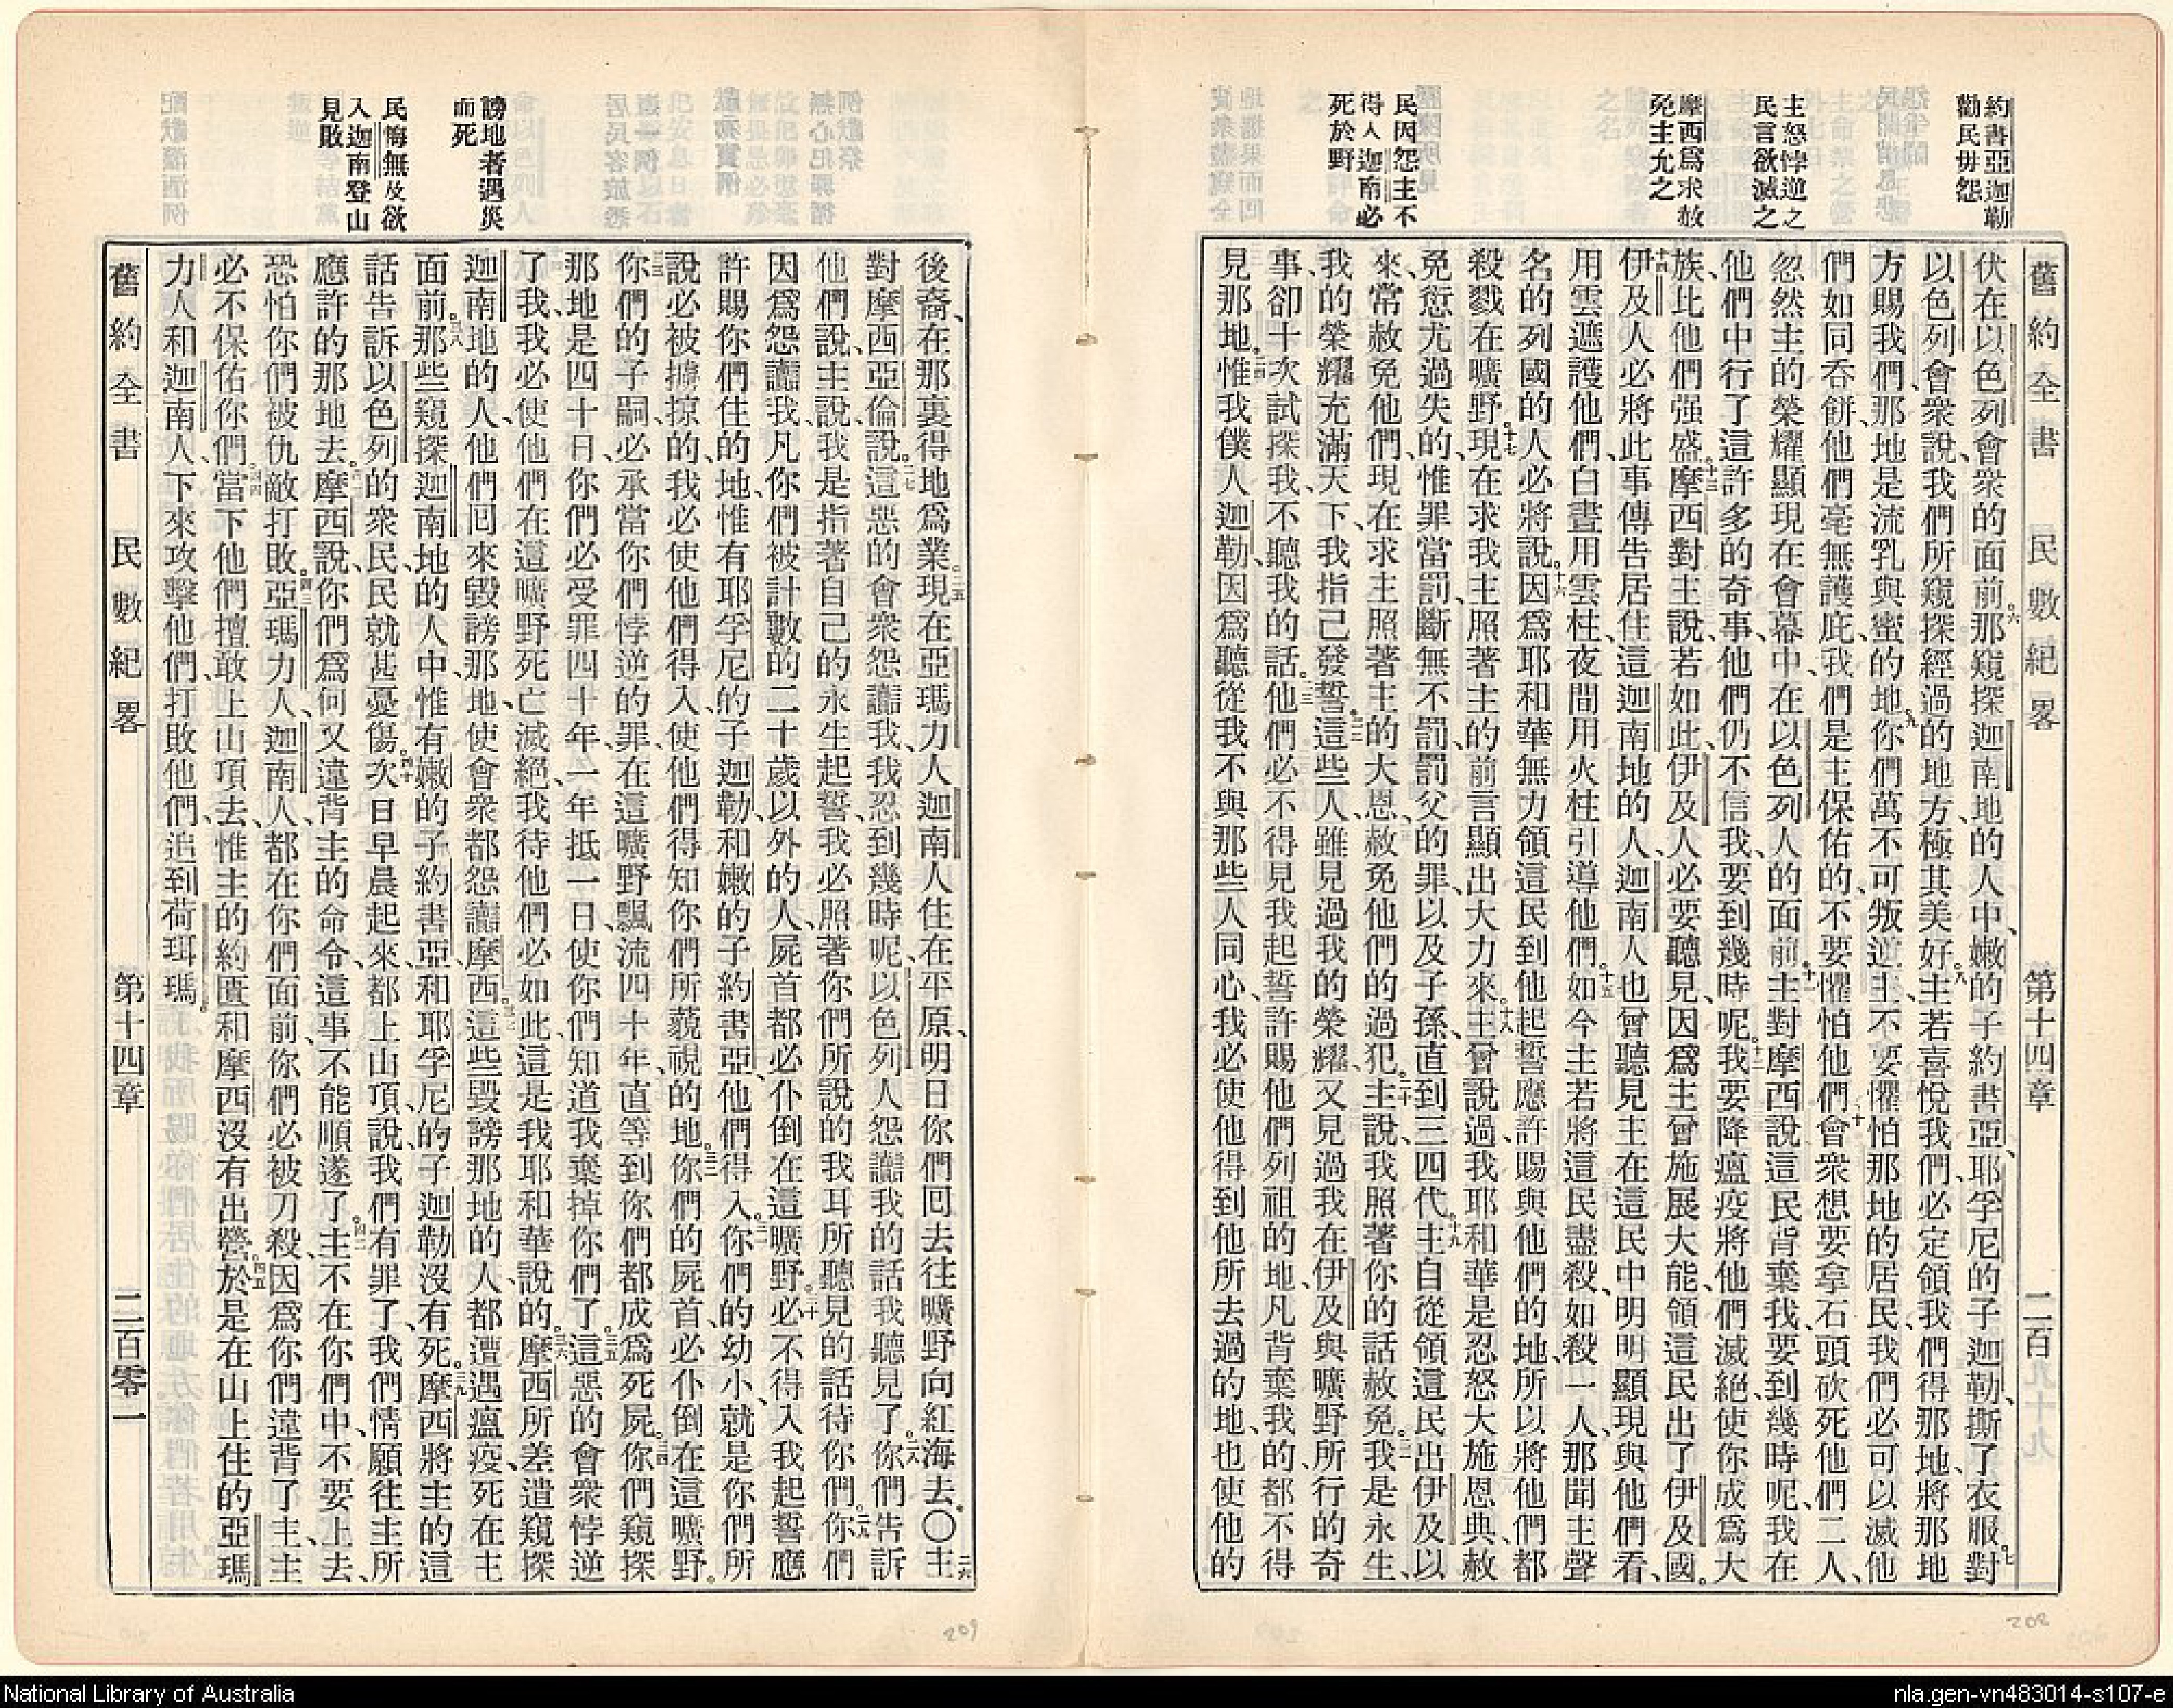 約書亞迦勒
勸民毋怨
主怒悖逆之
民言欲滅之
摩西爲求赦
免主允之
民因怨主不
得入迦南必
死於野
舊約全書 民數紀畧 第十四章 二百
伏在以色列會衆的面前。六那窺探迦南地的人中、嫩的子約書亞、耶孚尼的子迦勒、撕了衣服。七對
以色列會衆說、我們所窺探經過的地方、極其美好。八主若喜悅我們、必定領我們得那地、將那地
方賜我們、那地是流乳與蜜的地。九你們萬不可叛逆主、不要懼怕那地的居民、我們必可以滅他
們如同吞餅、他們毫無護庇、我們是主保佑的、不要懼怕他們。十會衆想要拿石頭砍死他們二人、
忽然主的榮耀顯現在會幕中、在以色列人的面前。十一主對摩西說、這民背棄我、要到幾時呢、我在
他們中行了這許多的奇事、他們仍不信我、要到幾時呢。十二我要降瘟疫將他們滅絕、使你成爲大
族、比他們强盛。十三摩西對主說、若如此、伊及人必要聽見、因爲主曾施展大能、領這民出了伊及國。
十四伊及人必將此事傳告居住這迦南地的人、迦南人也曾聽見主在這民中明明顯現與他們看、
用雲遮護他們、白晝用雲柱、夜間用火柱引導他們。十五如今主若將這民盡殺、如殺一人、那聞主聲
名的列國的人必將說。十六因爲耶和華無力領這民到他起誓應許賜與他們的地、所以將他們都
殺戮在曠野。十七現在求我主照著主的前言顯出大力來。十八主曾說過、我耶和華是忍怒大施恩典、赦
免愆尤過失的、惟罪當罰、斷無不罰、罰父的罪、以及子孫、直到三四代。十九主自從領這民出伊及以
來、常赦免他們、現在求主照著主的大恩、赦免他們的過犯。二十主說、我照著你的話赦免。二一我是永生、
我的榮耀充滿天下、我指己發誓。二二這些人、雖見過我的榮耀、又見過我在伊及與曠野所行的奇
事、卻十次試探我、不聽我的話。二三他們必不得見我起誓許賜他們列祖的地、凡背棄我的、都不得
見那地。二四惟我僕人迦勒、因爲聽從我、不與那些人同心、我必使他得到他所去過的地、也使他的
謗地者遇災
而死
民悔無及欲
入迦南登山
見敗
後裔、在那裏得地爲業。二五現在亞瑪力人迦南人住在平原、明日你們回去往曠野向紅海去。〇二六主
對摩西亞倫說。二七這惡的會衆怨讟我、我忍到幾時呢、以色列人怨讟我的話我聽見了。二八你們告訴
他們說、主說、我是指著自己的永生起誓、我必照著你們所說的我耳所聽見的話待你們。二九你們
因爲怨讟我、凡你們被計數的二十歲以外的人、屍首都必仆倒在這曠野。三十必不得入我起誓應
許賜你們住的地、惟有耶孚尼的子迦勒、和嫩的子約書亞、他們得入。三一你們的幼小、就是你們所
說必被擄掠的、我必使他們得入、使他們得知你們所藐視的地。三二你們的屍首、必仆倒在這曠野。
三三你們的子嗣、必承當你們悖逆的罪、在這曠野飄流四十年、直等到你們都成爲死屍。三四你們窺探
那地是四十日、你們必受罪四十年、一年抵一日、使你們知道我棄掉你們了。三五這惡的會衆悖逆
了我、我必使他們在這曠野死亡滅絕、我待他們必如此、這是我耶和華說的。三六摩西所差遣窺探
迦南地的人、他們回來毀謗那地、使會衆都怨讟摩西。三七這些毀謗那地的人、都遭遇瘟疫、死在主
面前。三八那些窺探迦南地的人中、惟有嫩的子約書亞、和耶孚尼的子迦勒沒有死。三九摩西將主的這
話告訴以色列的衆民、民就甚憂傷。四十次日早晨起來、都上山頂、說、我們有罪了、我們情願往主所
應許的那地去。四一摩西說、你們爲何又違背主的命令、這事不能順遂了。四二主不在你們中、不要上去、
恐怕你們被仇敵打敗。四三亞瑪力人、迦南人、都在你們面前、你們必被刀殺、因爲你們違背了主、主
必不保佑你們。四四當下他們擅敢上山頂去、惟主的約匱和摩西沒有出營。四五於是在山上住的亞瑪
力人和迦南人、下來攻擊他們、打敗他們、追到荷珥瑪。
舊約全書 民數紀畧 第十四章 二百零一
209
208
National Library of Australia
nla.gen-vn483014-s107-e